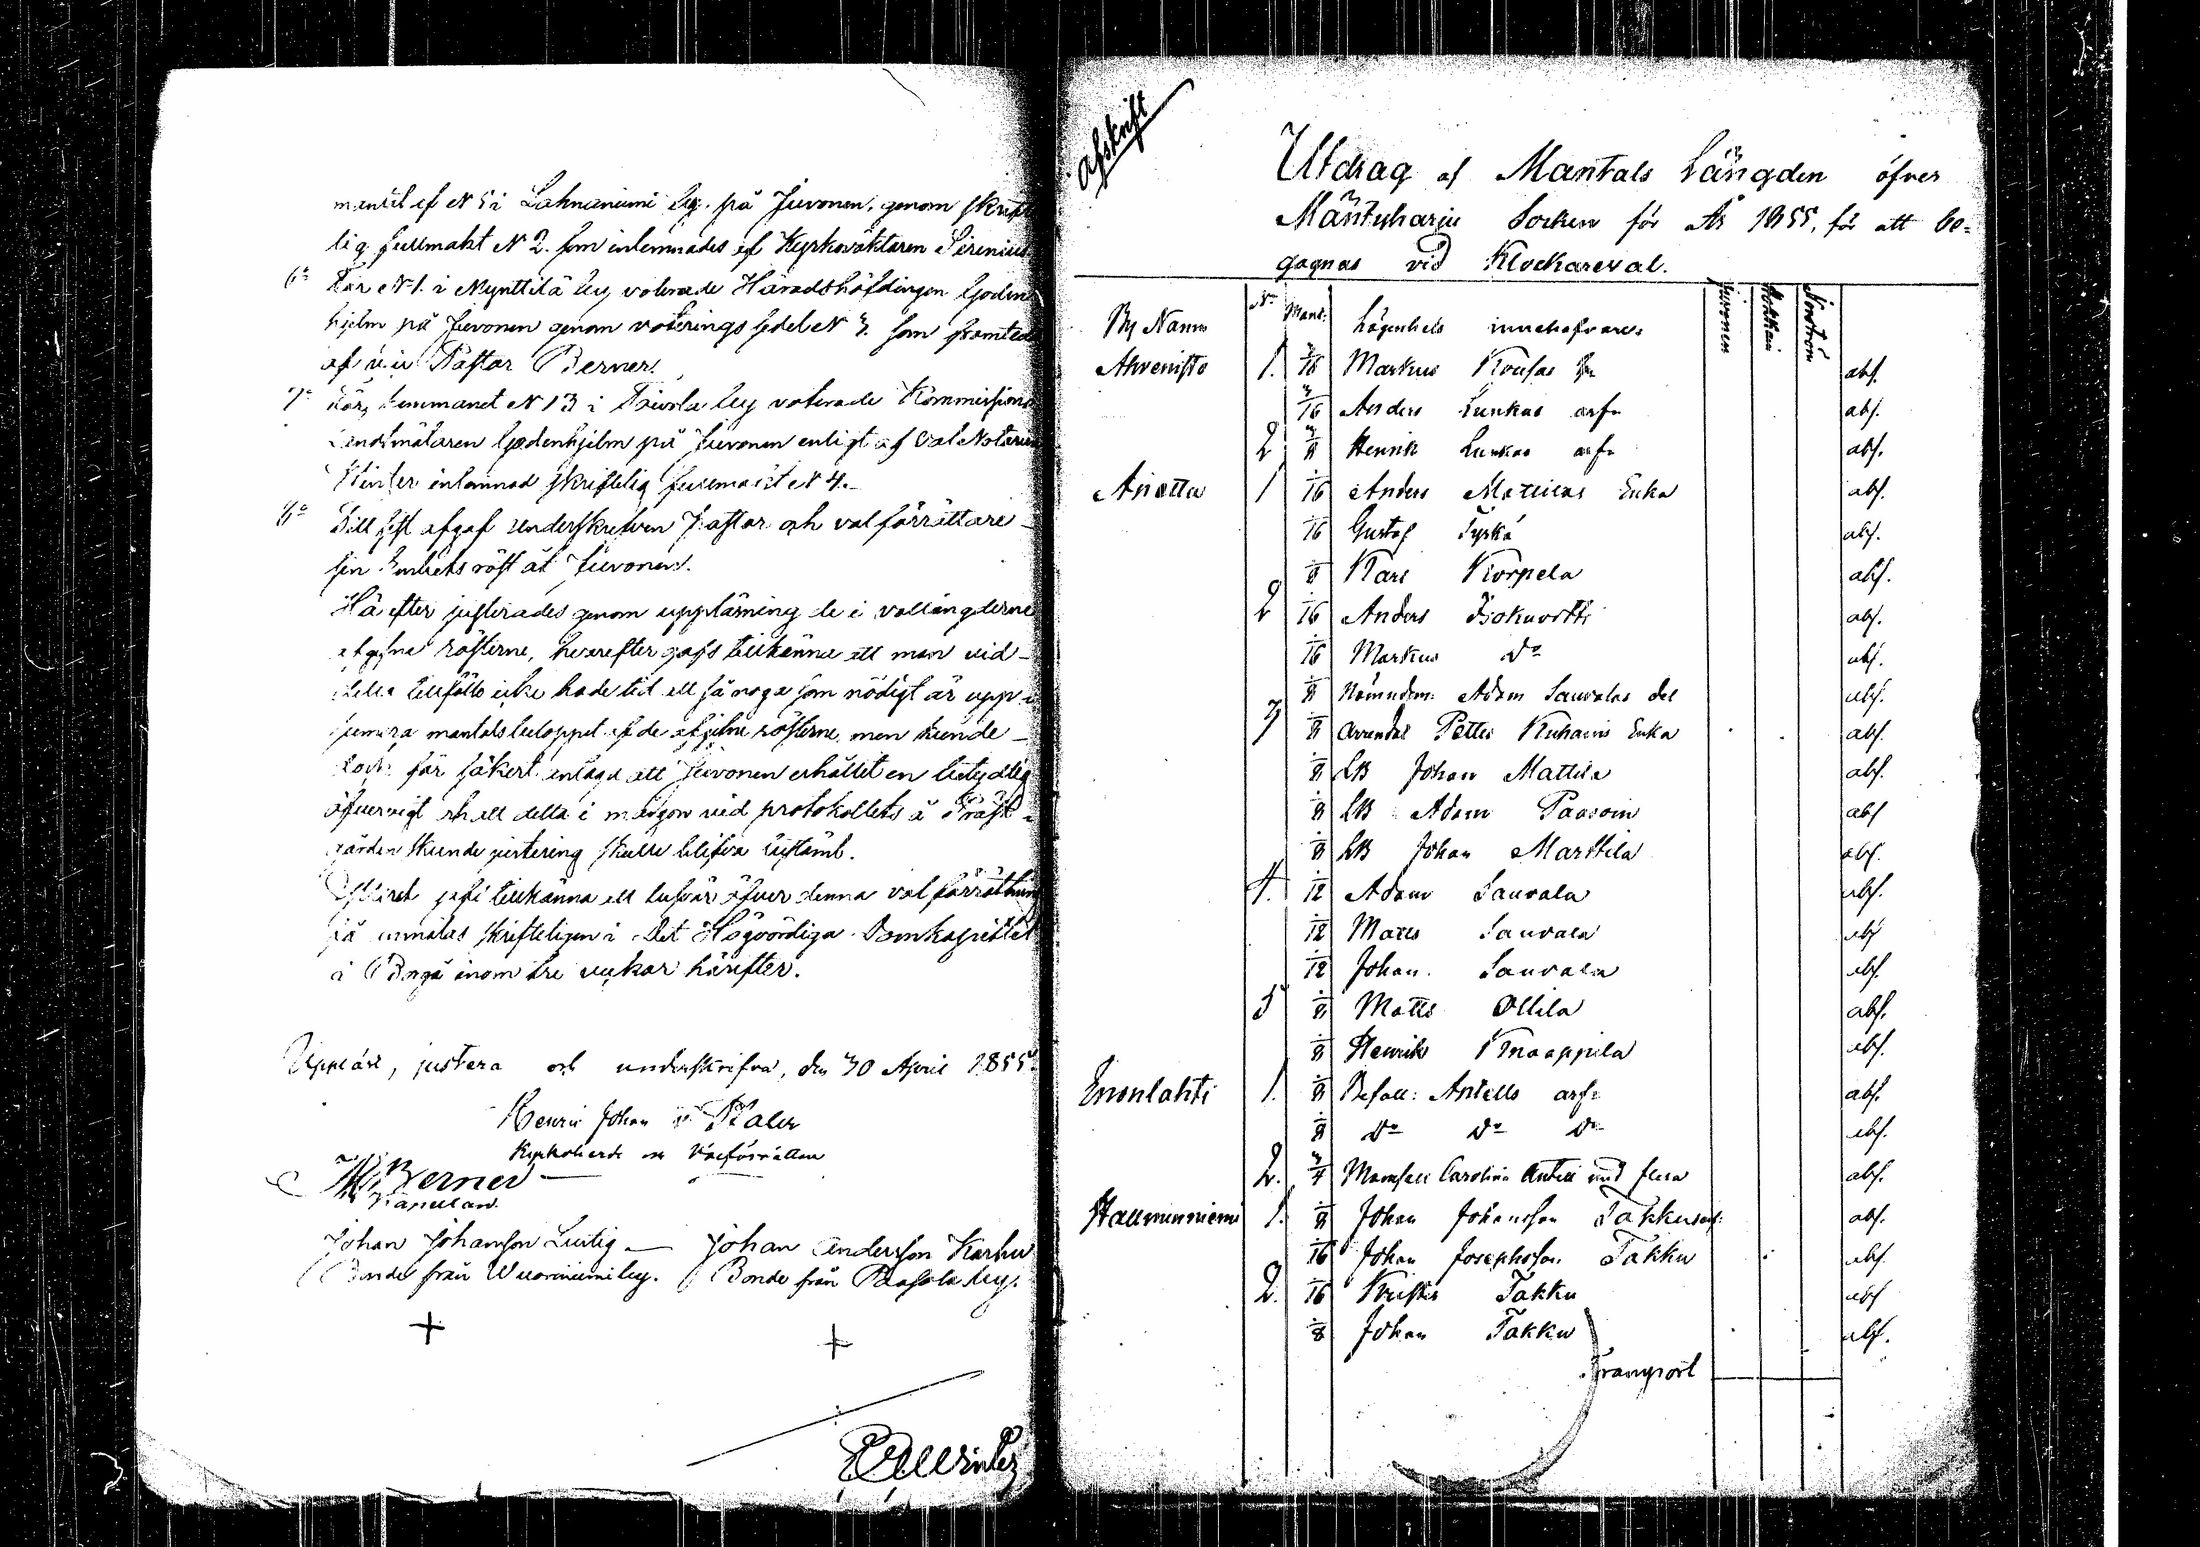 mantal af N 5 i Lahnaniemi by. på Juvonen, genom skrift
lig fullmakt N 2. som inlemnades af Kyrkoväktaren Sirenius
6o För N 1. i Mynttilä by voterade Häradshöfdingen Goden
hjelm på Juvonen genom voterings sedel N 3. som framtedd
af Pastor Berner.
7o För hemmanet N 13 i Toivola by voterade Kommissions
Landtmätaren Godenhjelm på Juvonen enligt af Val Notarien
Winter inlamnad skriftelig fullmakt N 4.
8o Till sist afgaf underskrefven Pastor och valförrättare
sin röst åt Juvonen.
Härefter justerades genom uppläsning de i vallängderne
afgifne rösterne, hvarefter gafs tillkänna att man vid
detta tillfälle icke hade tid att så noga som nödigt är upp
summera mantalsbeloppet af de afgifne rösterne, men kunde
dock för säkert antaga att Juvonen erhållit en betydlig
öfvervigt och att detta i morgon vid protokollets å Präst
gården skeende justering skulle blifva bestämt.
gafs tillkänna att besvär öfver denna valförrättning
få anmälas skrifteligen i Det Högvördiga Domkapitlet
i Borgå inom tre veckor härefter.
Uppläst, justera och underskrifva, den 30 April 1855.
Henric Johan
Kyrkoherde och Valförrättare
Berner
Kapellan.
Johan Johansson Lustig — Johan Andersson Karhu
Bonde från Wuoriniemi by. Bonde från Paasola by.
+ +
Winter
Afskrift
Utdrag af Mantals Längden öfver
Mäntyharju Socken för År 1855, för att be-
gagnas vid Klockareval.
By Namn No Mant: Lägenhets innehafvare Juvonen Hokkani Sirström
Ahvenisto 1. 3/16 Markus Kousas abs.
3/16 Anders Lunkas arfr abs.
2 3/8 Henrik Lunkas arfr abs.
Anotta 1 1/16 Anders Mattilas Enka abs.
1/16 Gustaf Tyskä abs.
1/8 Karl Korpela abs.
2 1/16 Anders Isokuortti abs.
1/16 Markus Do abs.
1/8 Nämndem: Adam Sauvalas del abs.
3 1/8 Arrendat Petter Kuhains Enka abs.
1/8 LB Johan Mattila abs.
1/8 LB Adam Paasoin abs
1/8 LB Johan Marttila abs.
4. 1/12 Adam Sauvala abs.
1/12 Matts Sauvala abs
1/12 Johan. Sauvala abs.
5 1/8 Matts Ollila abs.
1/8 Henrik Knaappila abs.
Enonlahti 1. 1/8 Befall: Antells arfr abs.
1/8 Do Do Do abs.
2. 3/4 Mamsell Carolina Antell med flera abs.
Halluinniemi 1. 1/8 Johan Johansson Takku abs.
1/16 Johan Josephsson Takku abs.
2. 1/16 Krister Takku abs
1/8 Johan Takku abs.
Transport